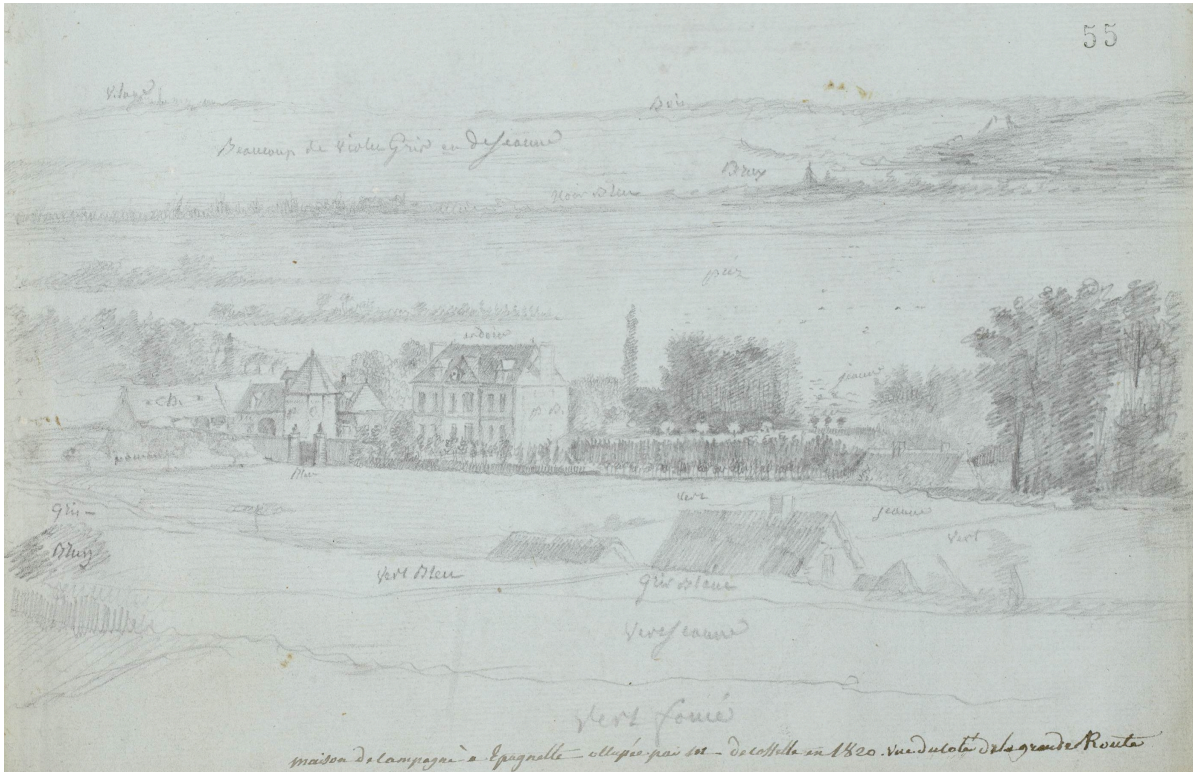 55
Village
Bois
Beaucoup de violer Gris en de Jeaune
Brun
Noir Bleu
prez
ardoise
Jeaune
Bleu
vert
Jeaune
Gris
vert
Brun
vert Bleu
Gris Bleue
Vert Jeaune
vert foncé
maison de campagne à Epagnette occupée par Mr - delattelle en 1820. vue du coté de la grande Route